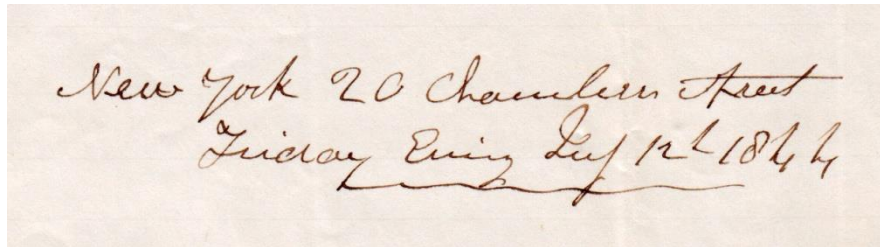 New York 20 Chambers Street
Friday Eving July 12h 1844